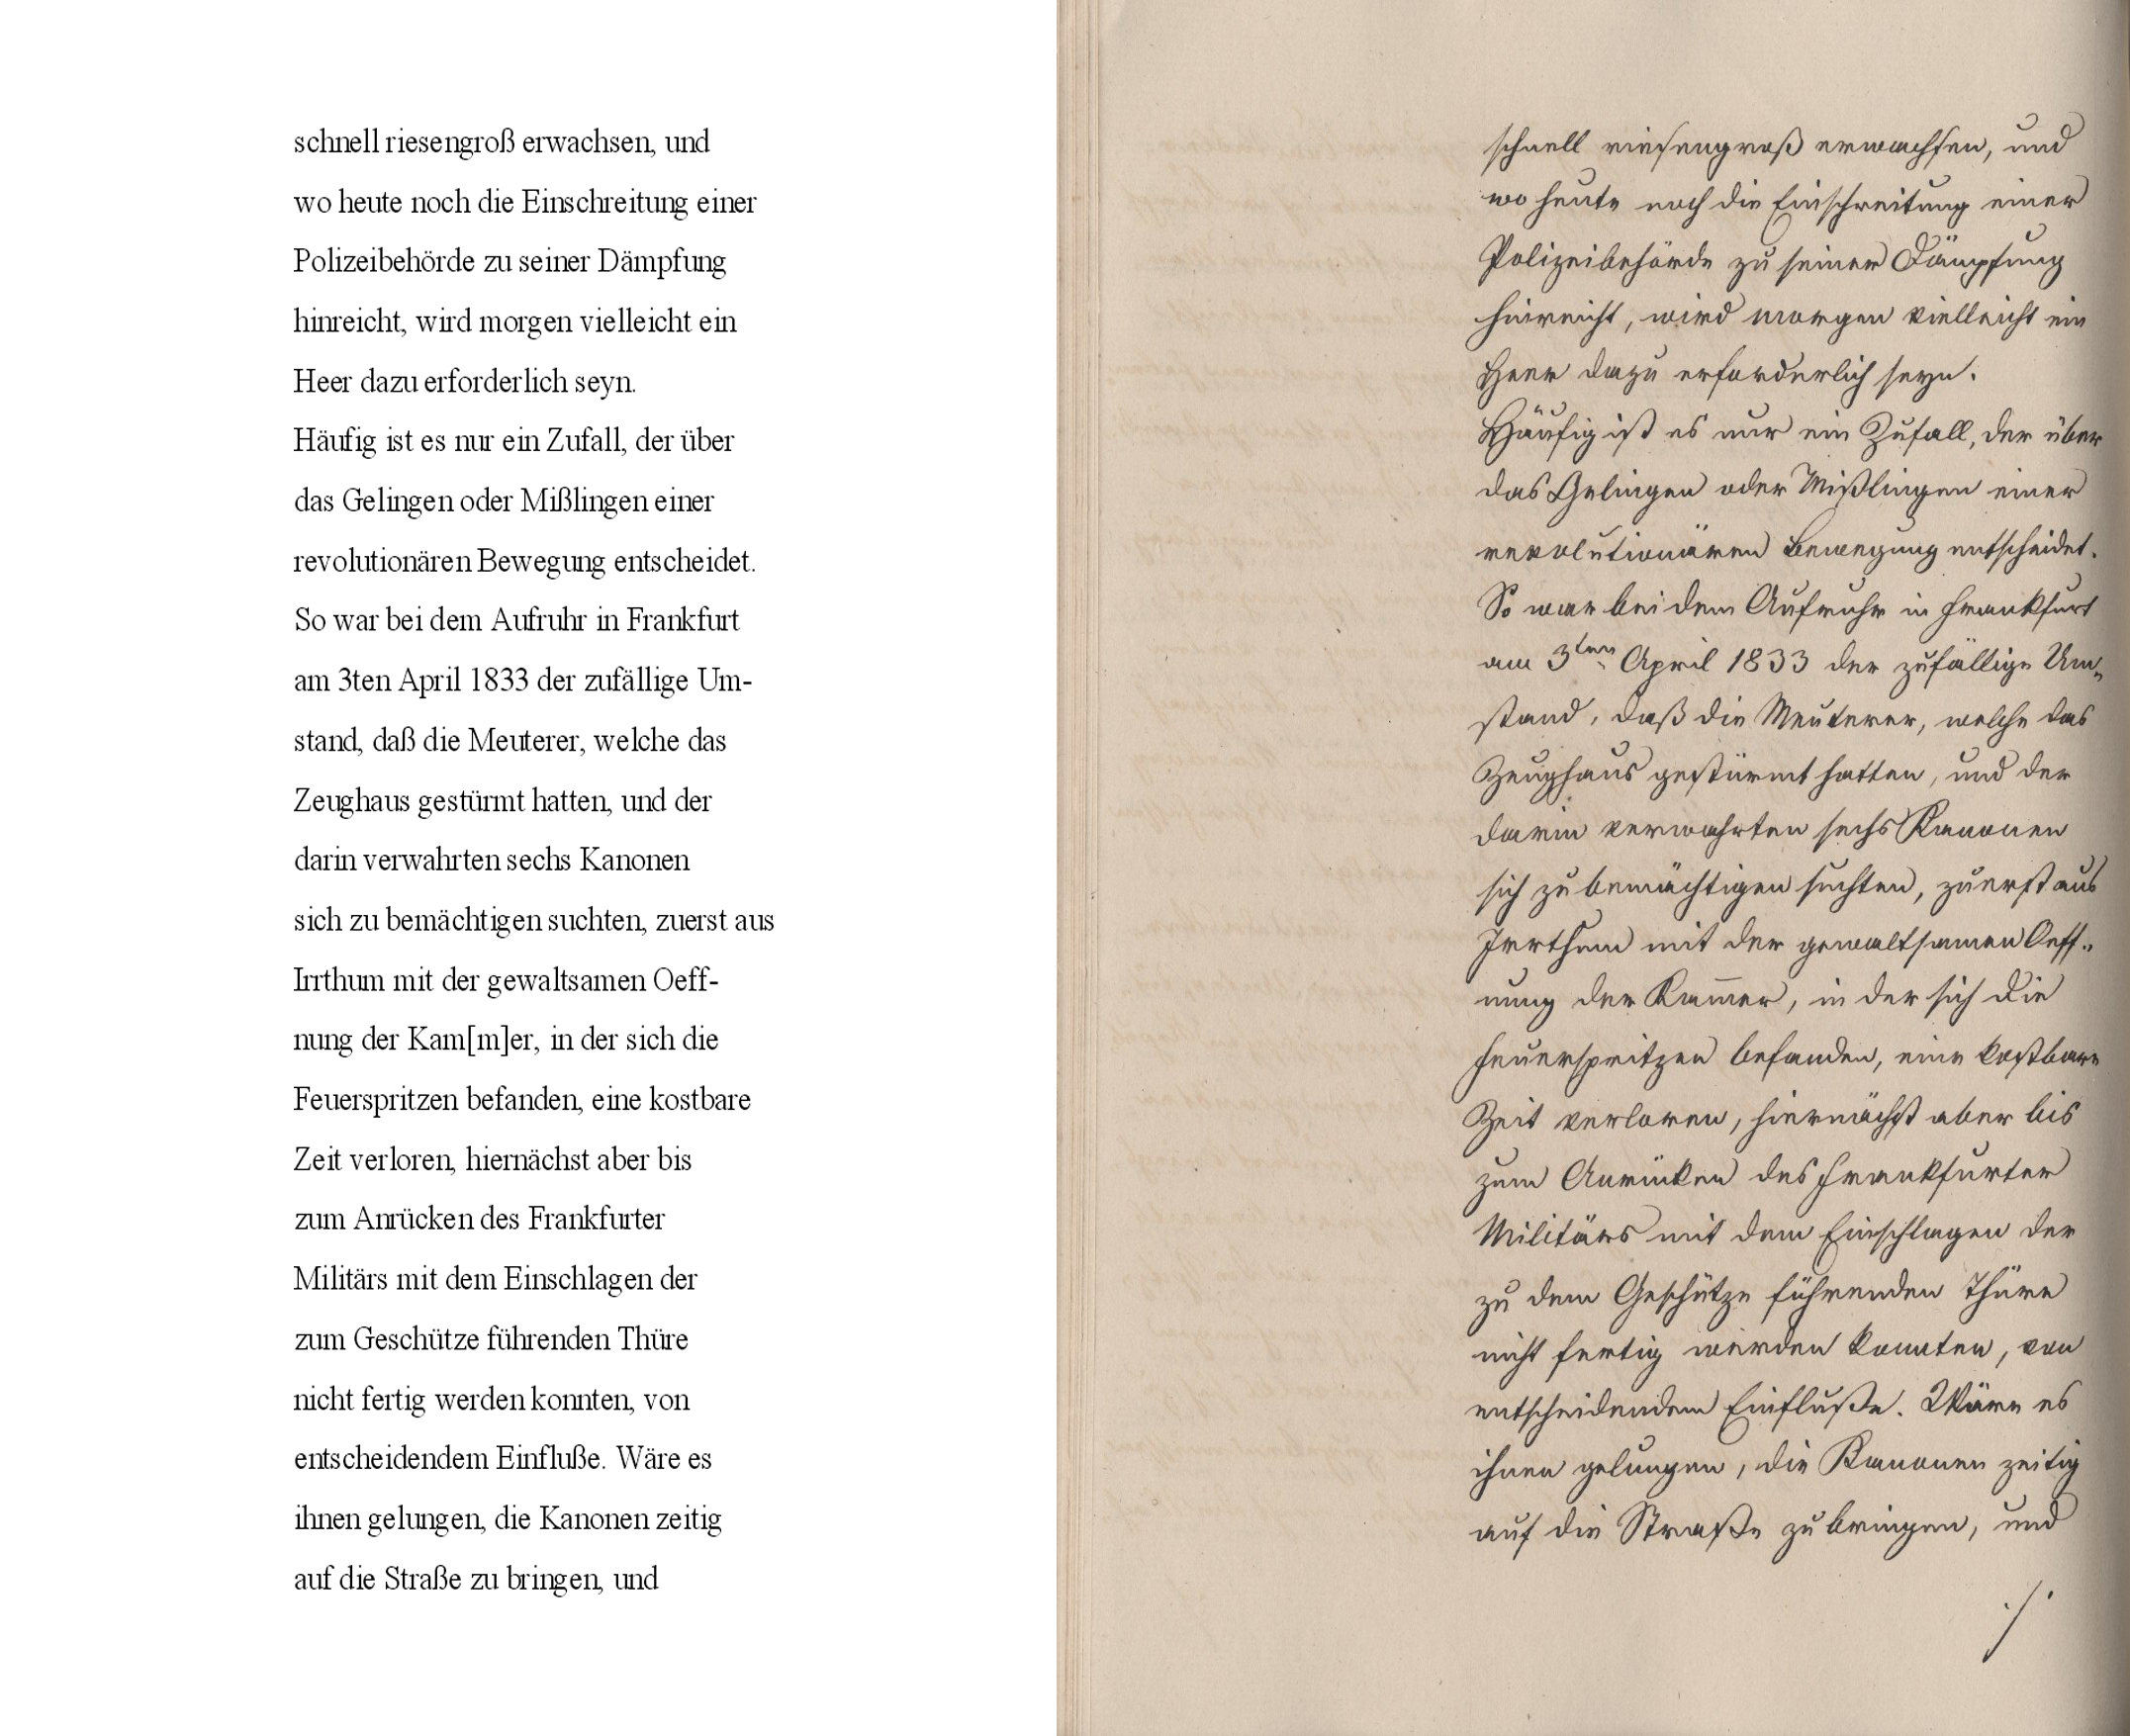 schnell riesengroß erwachsen, und
wo heute noch die Einschreitung einer
Polizeibehörde zu seiner Dämpfung
hinreicht, wird morgen vielleicht ein
Heer dazu erforderlich seyn.
Häufig ist es nur ein Zufall, der über
das Gelingen oder Mißlingen einer
revolutionären Bewegung entscheidet.
So war bei dem Aufruhr in Frankfurt
am 3ten April 1833 der zufällige Um-
stand, daß die Meuterer, welche das
Zeughaus gestürmt hatten, und der
darin verwahrten sechs Kanonen
sich zu bemächtigen suchten, zuerst aus
Irrthum mit der gewaltsamen Oeff-
nung der Kam[m]er, in der sich die
Feuerspritzen befanden, eine kostbare
Zeit verloren, hiernächst aber bis
zum Anrücken des Frankfurter
Militärs mit dem Einschlagen der
zum Geschütze führenden Thüre
nicht fertig werden konnten, von
entscheidendem Einfluße. Wäre es
ihnen gelungen, die Kanonen zeitig
auf die Straße zu bringen, und
schnell riesengroß erwachsen, und
wo heute noch die Einschreitung einer
Polizeibehörde zu seiner Dämpfung
hinreicht, wird morgen vielleicht ein
Heer dazu erforderlich seyn.
Häufig ist es nur ein Zufall, der über
das Gelingen oder Mißlingen einer
revolutionären Bewegung entscheidet.
So war bei dem Aufruhr in Frankfurt
am 3ten April 1833 der zufällige Um-
stand, daß die Meuterer, welche das
Zeughaus gestürmt hatten, und der
darin verwahrten sechs Kanonen
sich zu bemächtigen suchten, zuerst aus
Irrthum mit der gewaltsamen Oeff-
nung der Kam̅er, in der sich die
Feuerspritzen befanden, eine kostbare
Zeit verloren, hiernächst aber bis
zum Anrücken des Frankfurter
Militärs mit dem Einschlagen der
zu dem Geschütze führenden Thüre
nicht fertig werden konnten, von
entscheidendem Einfluße. Wäre es
ihnen gelungen, die Kanonen zeitig
auf die Straße zu bringen, und
./.